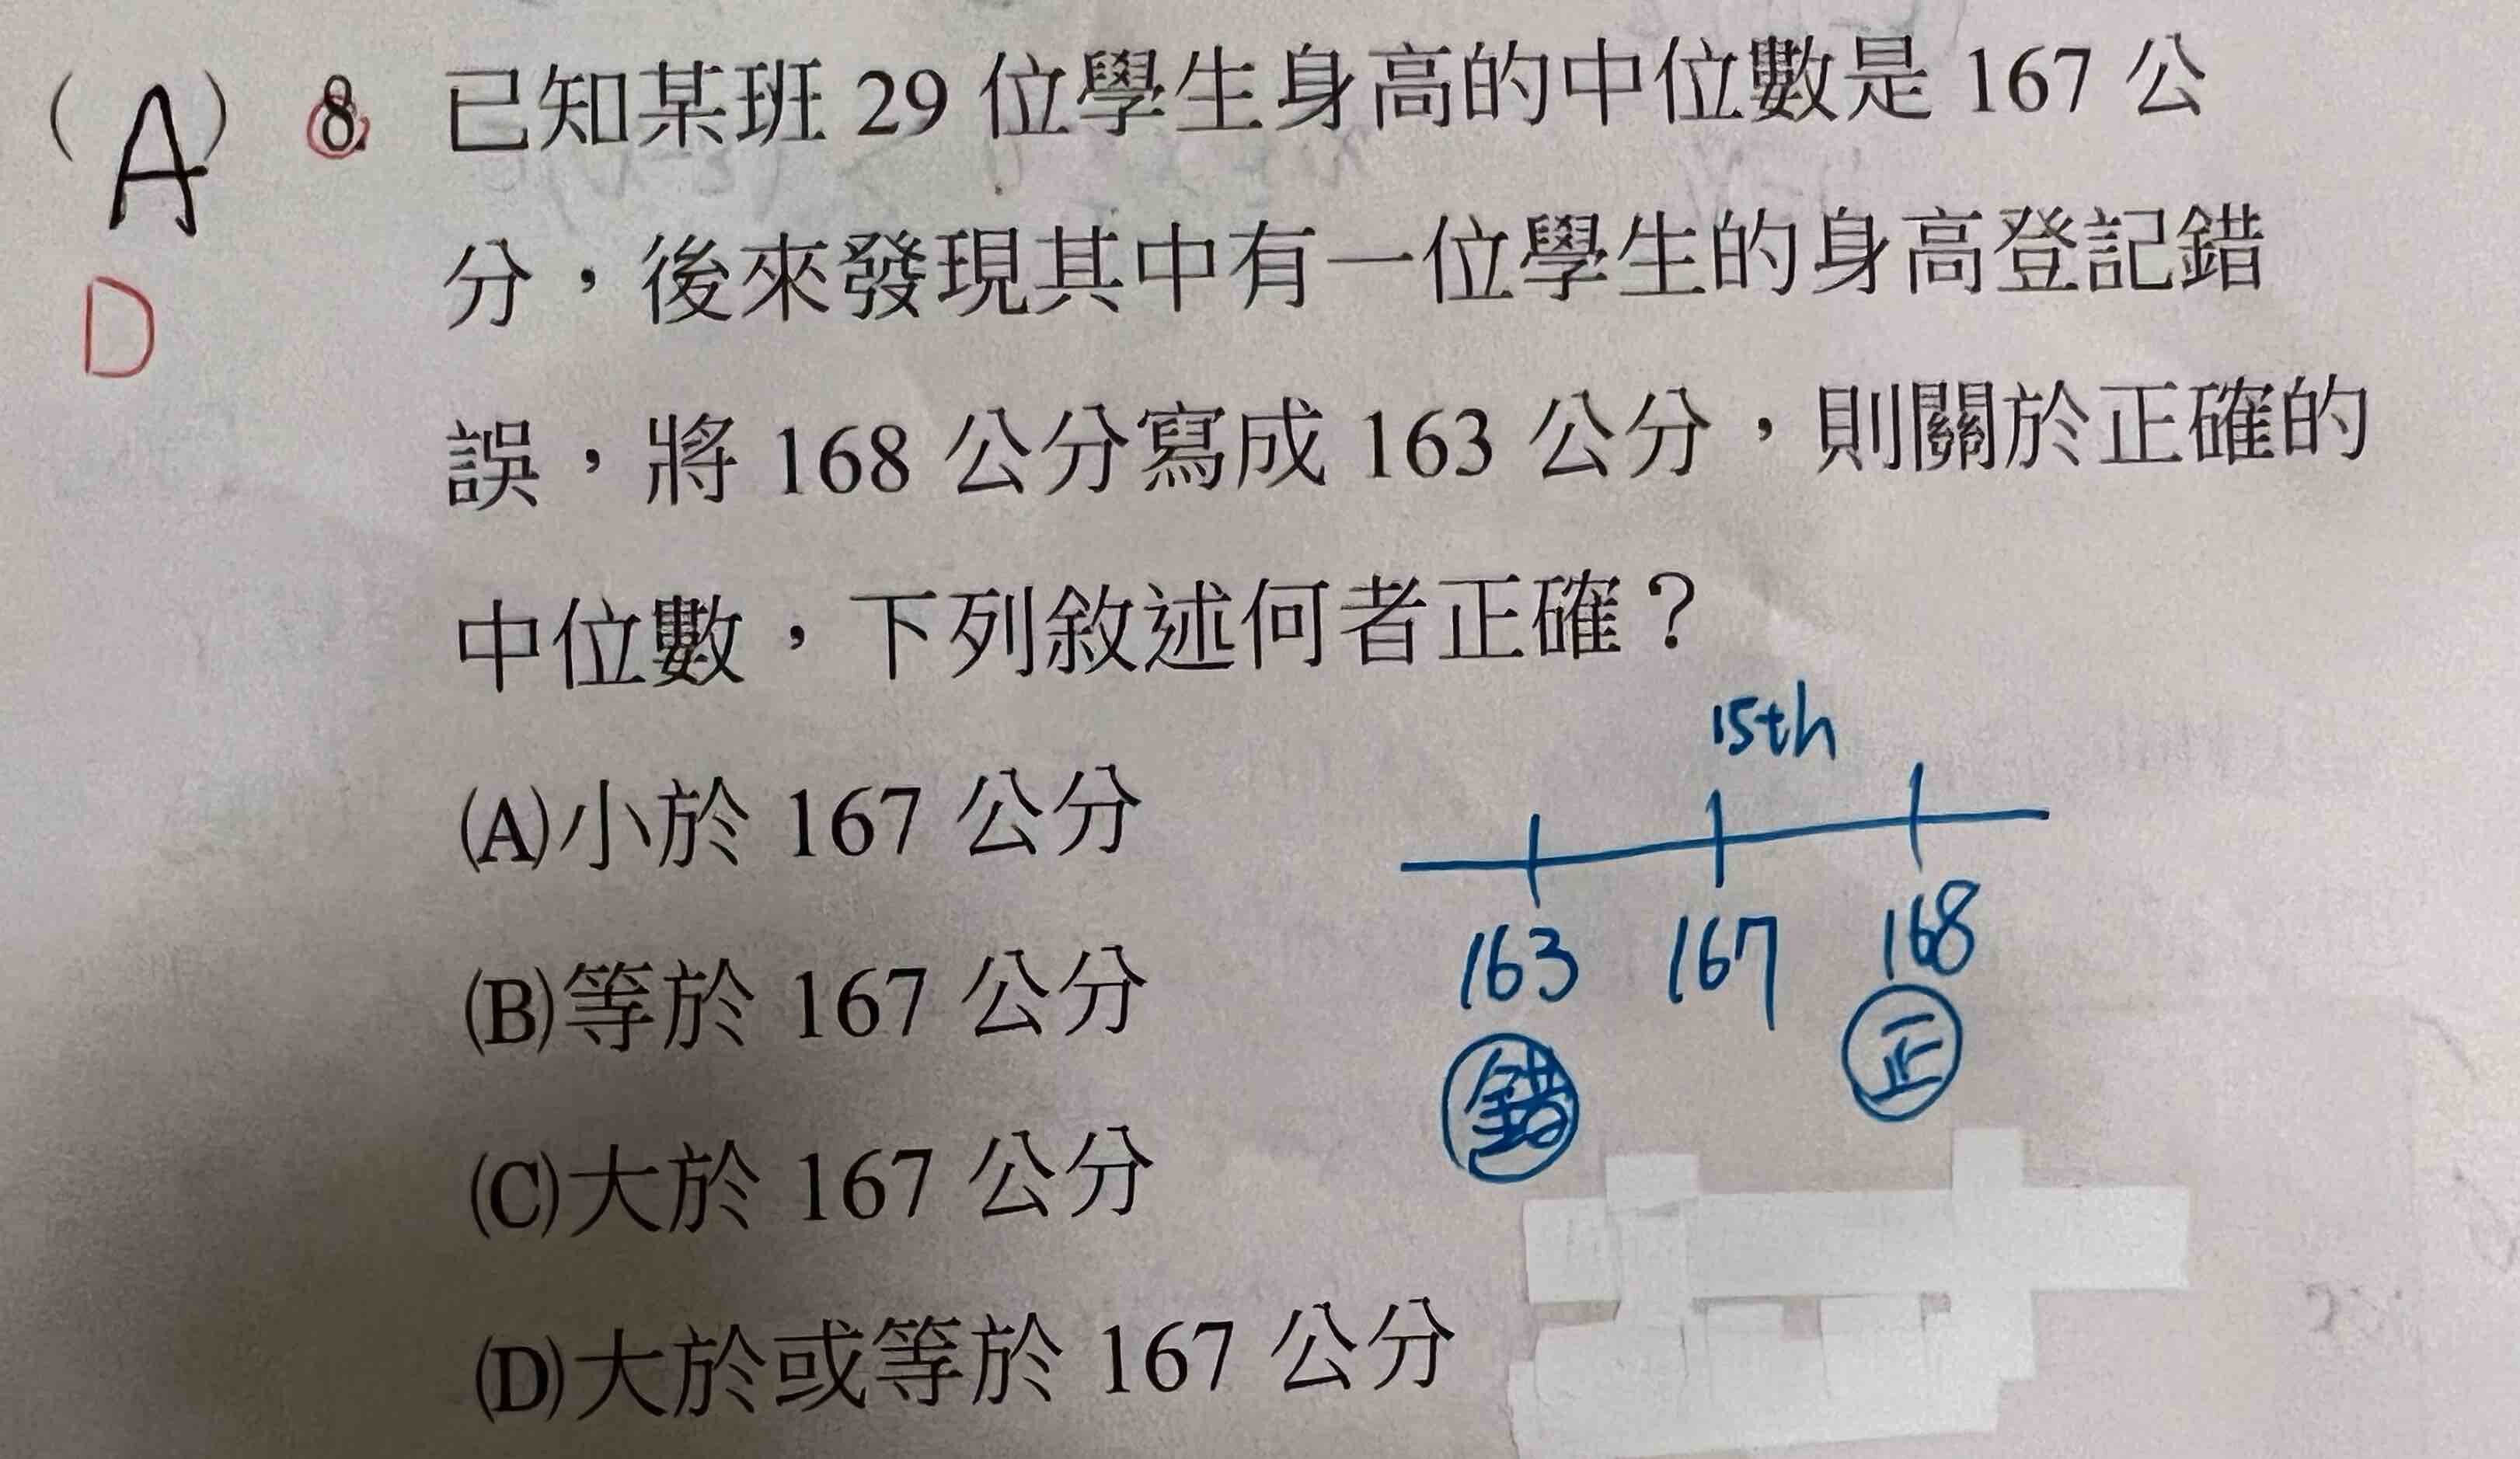 (A) 8. 已知某班 29 位學生身高的中位數是 167 公
分，後來發現其中有一位學生的身高登記錯
D
誤，將 168 公分寫成 163 公分，則關於正確的
中位數，下列敘述何者正確？
15th
(A)小於 167 公分
163 167 168
(B)等於 167 公分
錯 正
(C)大於 167 公分
(D)大於或等於 167 公分